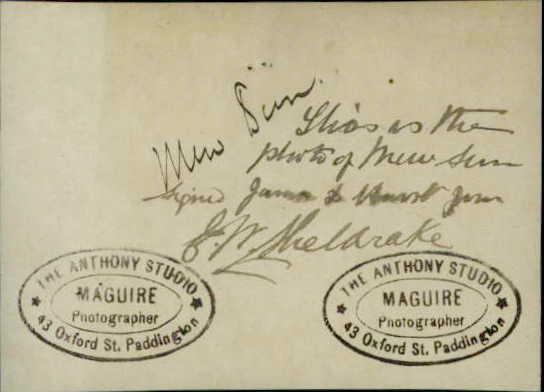 Mew Sun.
This is the
photo of Mew Sun
signed
E. W. Sheldrake
THE ANTHONY STUDIO
MAGUIRE
Photographer
43 Oxford St. Paddington
THE ANTHONY STUDIO
MAGUIRE
Photographer
43 Oxford St. Paddington